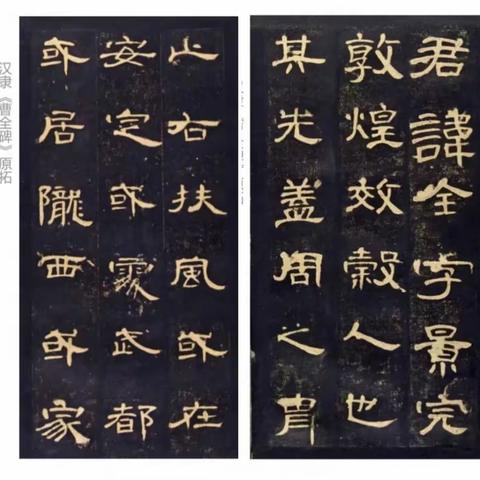 君諱全字景完
敦煌效穀人也
其先蓋周之胄
止右扶風或在
安定或處武都
或居隴西或家
汉隶《曹全碑》原拓